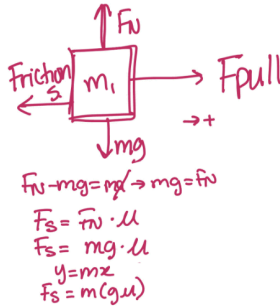 FN
Friction
s
m₁
Fpull
→+
mg
FN-mg=ma→mg=FN
Fs=FN·μ
Fs=mg·μ
y=mx
Fs=m(gμ)